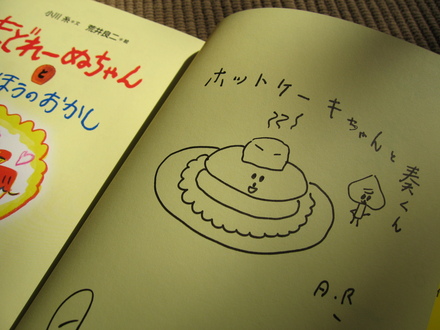 小川糸・文 荒井良二・絵
まどれーぬちゃん
と
ほうのおかし
ホットケーキちゃんと奏くん
A.R